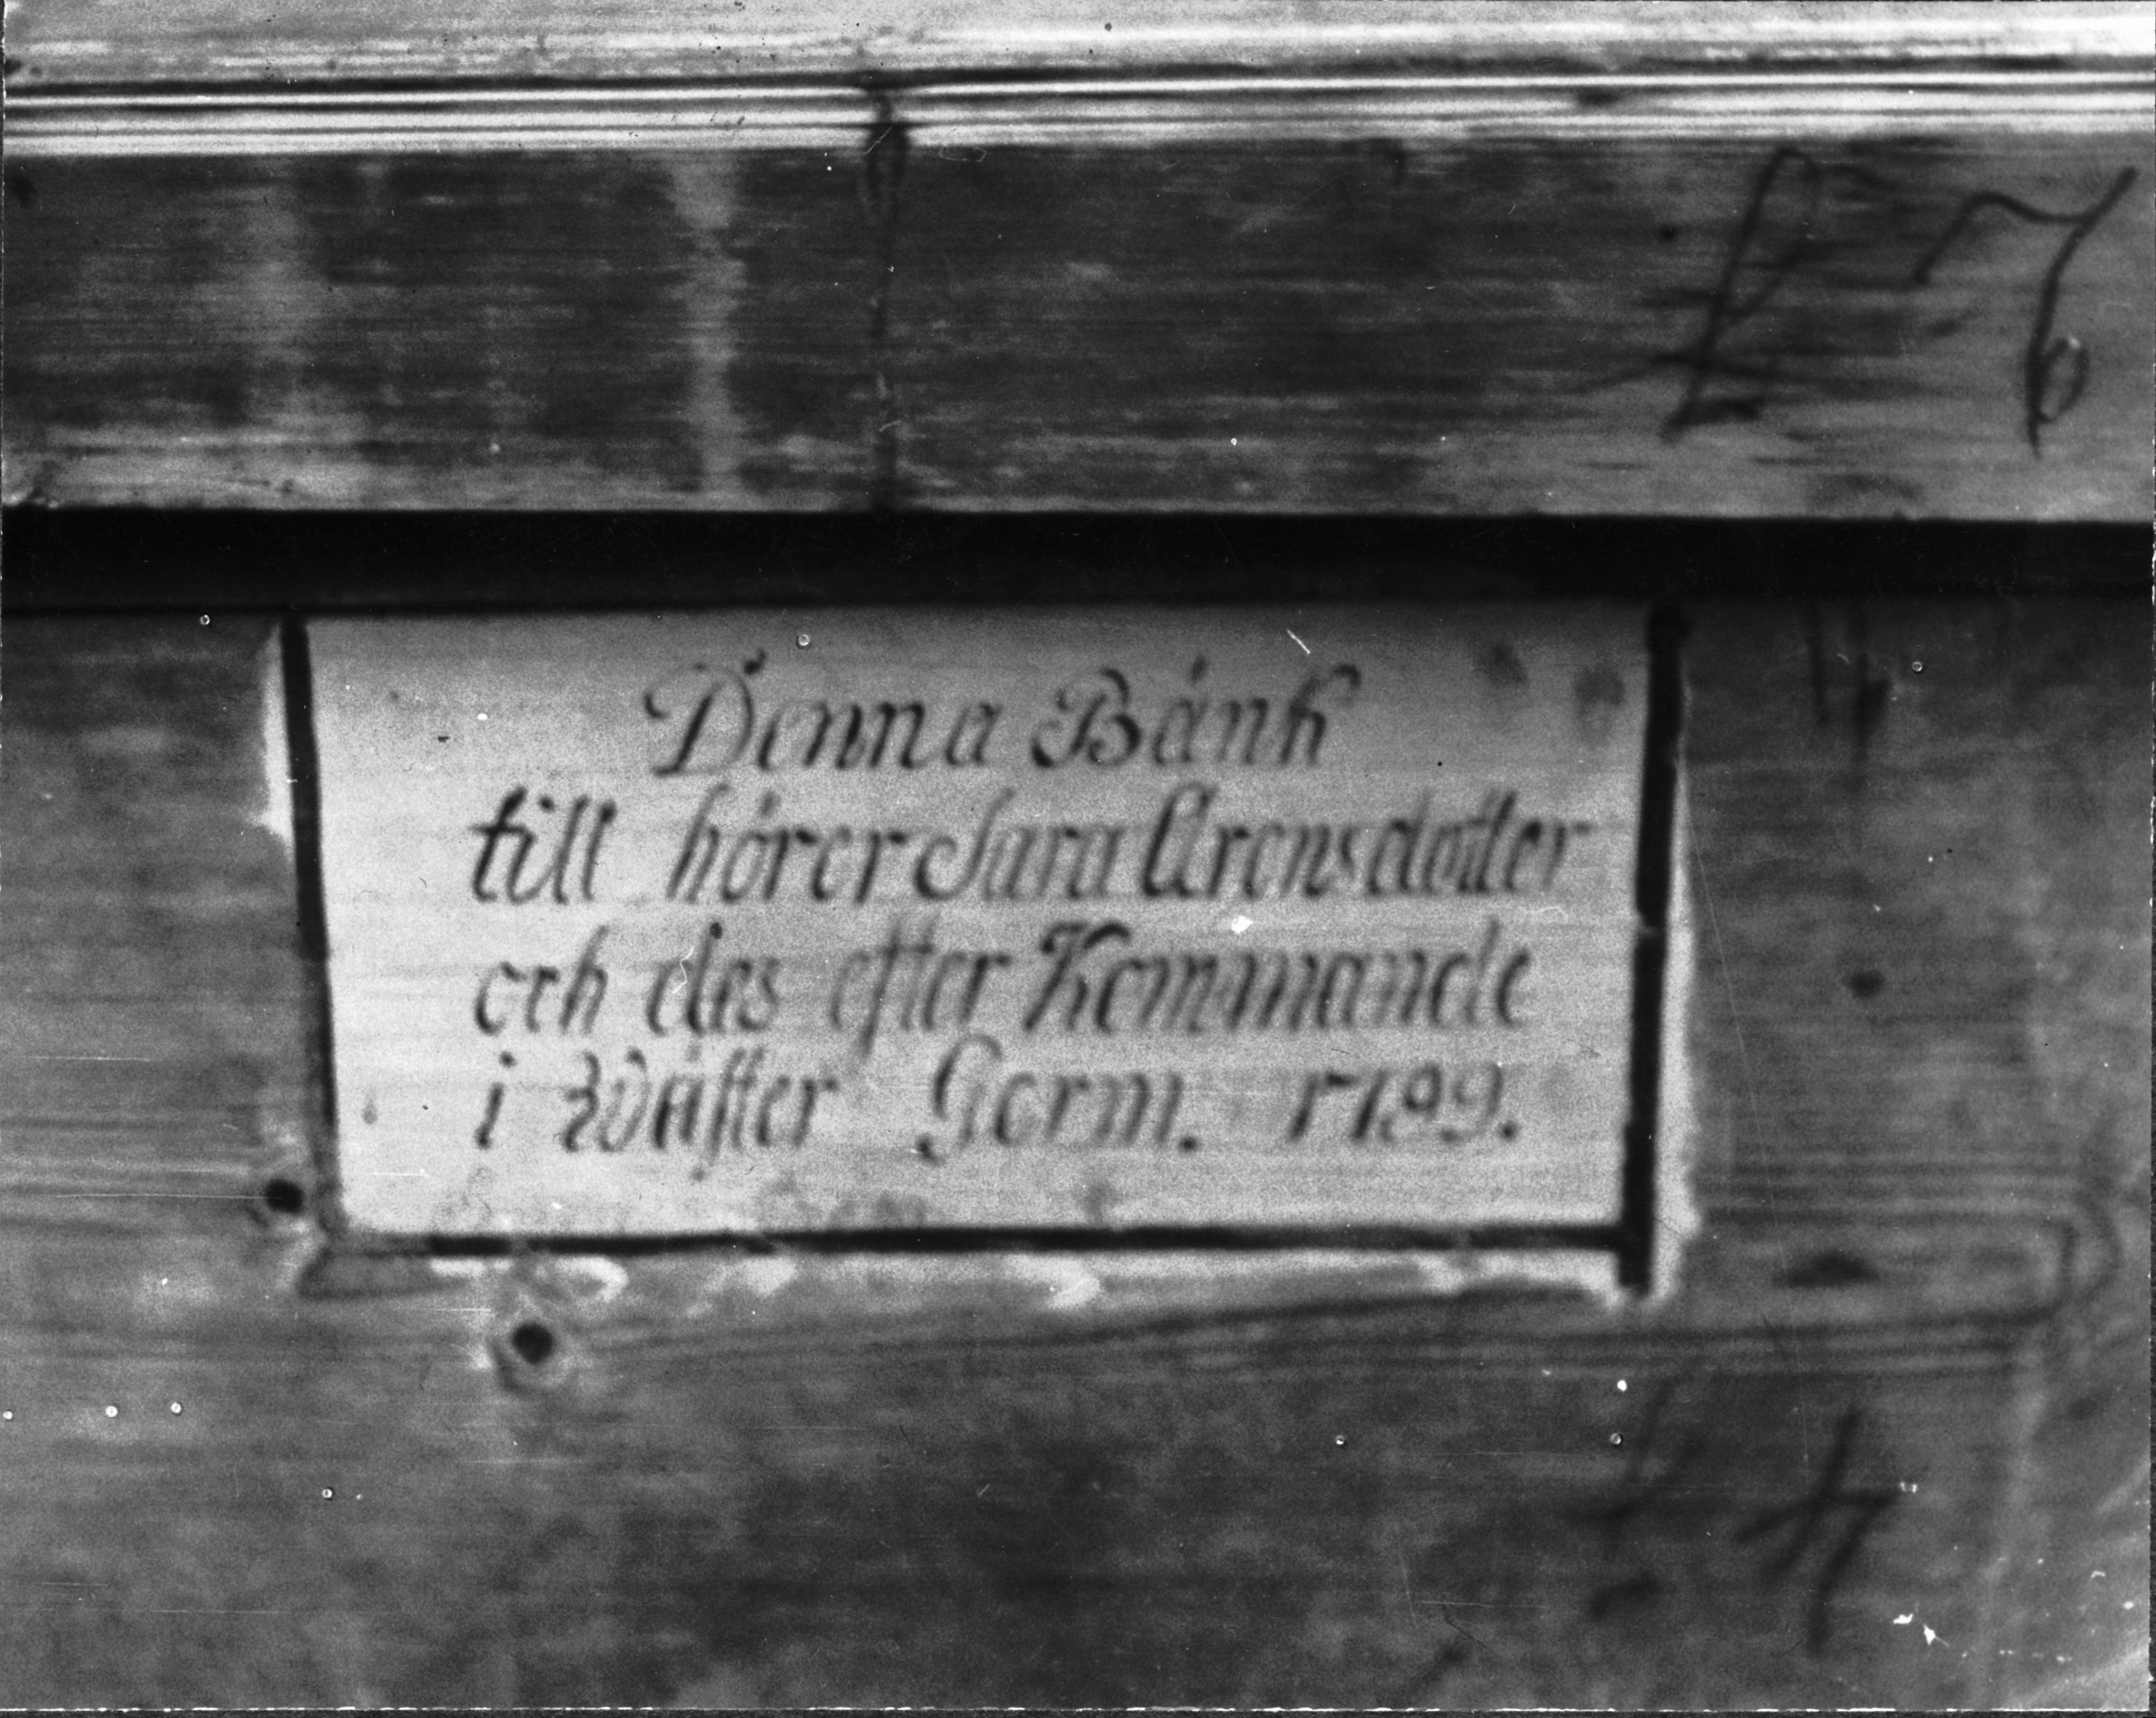 Denna Bänk
till hörer Sara Arensdotter
och des efter Kommande
i Wäster Gerum. 1799.